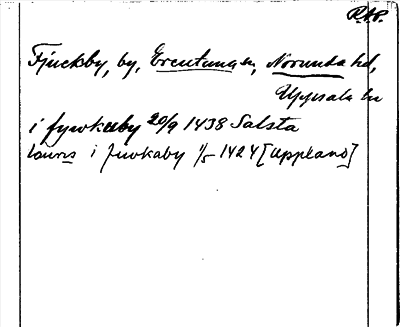 RAP.
Fjuckby, by, Ärentuna sn, Norunda hd,
Uppsala län
i fywkaby 20/9 1438 Salsta
laurs i fiwkaby 1/5 1424 [Uppland]